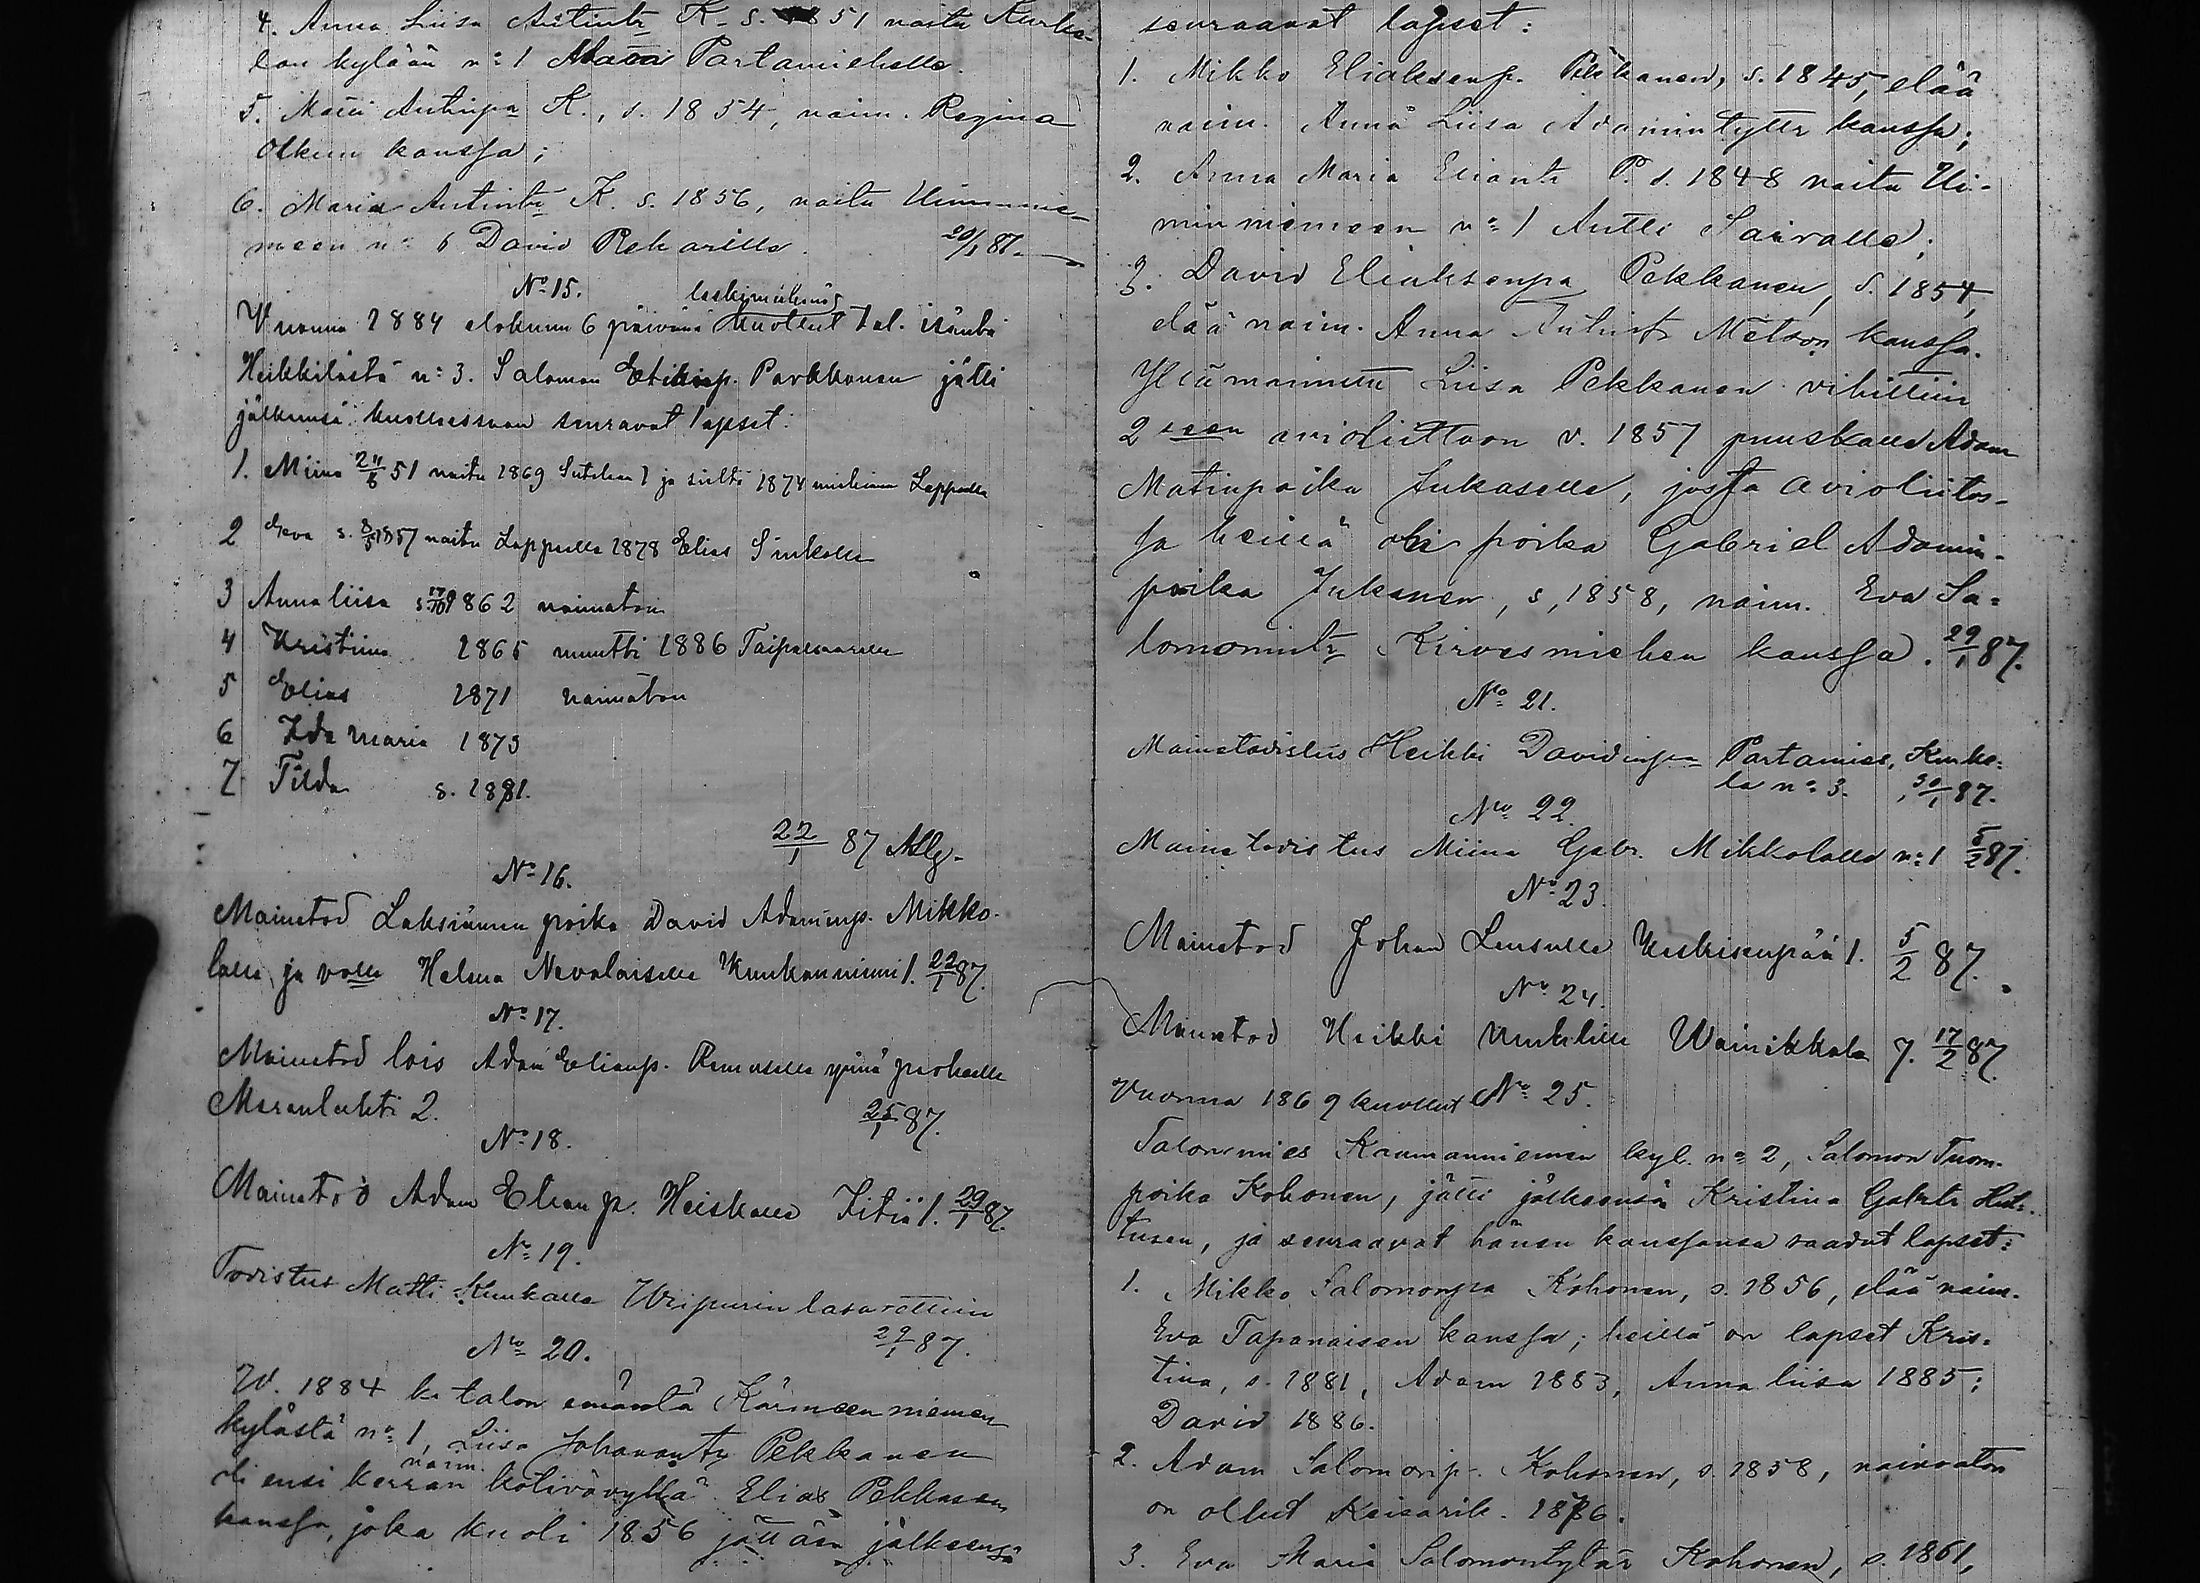 4. Anna Liisa Antintr K. s. 1851 naitu Kurko-
lan kylään n:o 1 Matti Partamiehelle.
5. Matti Antinpa K., s. 1854, naim. Regina
Olkun kanssa;
6. Maria Antintr K. s. 1856, naitu Uiminnie-
meen n:o 6 David Rekarille. 87.
No 15.
leskimiehenä
Vuonna 1884 elokuun 6 päivänä kuollut tal. isäntä
Heikkilästä n:o 3. Salomon Parkkonen jätti
jälkeensä kuollessaan seuravat lapset:
1. Miina 51 naitu 1869 1 ja sieltä 1874 Lappeella
2 Eeva s. 8/5 1857 naitu Lappeella 1878 Elias Sinkolle
3 Anna liisa s 17/10 1862 naimaton
4 Kristiina 1865 muutti 1886 Taipalsaarelle
5 Elias 1871 naimaton
6 Ida Maria 1875
7 Tilda s. 1881.
22/1 87
No 16.
Mainetod Laksiämen poika David Adaminp. Mikko-
lalle ja Helena Nevalaiselle 1. 22/1 87.
No 17.
Mainetod lois Adam Elianp.
2. 25/1 87.
No 18.
Mainetod Adam Elian p. Heiskaselle Iitiä 1. 29/1 87.
No 19.
Todistus Matti Kuukalle Wiipurin lasarettiin
29/1 87.
No 20.
W. 1884 k. talon emäntä Kärmeenniemen
kylästä n:o 1, Liisa Johanantr Pekkanen
naim.
oli ensi kerran kotivävyllä Elias Pekkasen
kanssa, joka kuoli 1856 jättäen jälkeensä
seuraavat lapset:
1. Mikko Eliaksenp. Pekkanen, s. 1845, elää
naim. Anna Liisa Adamintyttr kanssa;
2. Anna Maria Eliantr P. s. 1848 naitu Ui-
minniemeen n:o 1 Antti Sairalle;
3. David Eliaksenpa Pekkanen, s. 1854,
elää naim. Anna Antintr Metson kanssa.
Yllämainittu Liisa Pekkanen vihittiin
2seen avioliittoon v. 1857 Adam
Matinpoika Jukaselle, josta avioliitos-
sa heillä oli poika Gabriel Adamin-
poika Jukanen, s, 1858, naim. Eva Sa-
lomonintr Kirvesmiehen kanssa. 29/1 87.
No 21.
Mainetodistus Heikki Davidinpa Partamies, Kurko-
la n:o 3. 30/1 87.
No 22.
Mainetodistus Miina Gabr. Mikkolalle n:o 1 5/2 87.
No 23.
Mainetod Johan Lensulle Keskisenpää 1. 5/2 87.
No 24.
Mainetod Heikki Wainikkala 7. 17/2 87.
Vuonna 1869 kuollut No 25.
Talonmies kyl. n:o 2, Salomon Tuom.
poika Kohonen, jätti jälkeensä Kristina Gabrtr Hut-
tusen, ja seuraavat hänen kanssansa saadut lapset:
1. Mikko Salomonpa Kohonen, s. 1856, elää naim.
Eva Tapanaisen kanssa; heillä on lapset Kris-
tina, s. 1881, Adam 1883, Anna liisa 1885;
David 1886.
2. Adam Salomonp. Kohonen, s. 1858, naimaton
on ollut Keisarik. 1886.
3. Eva Maria Salomontytär Kohonen, s. 1861,